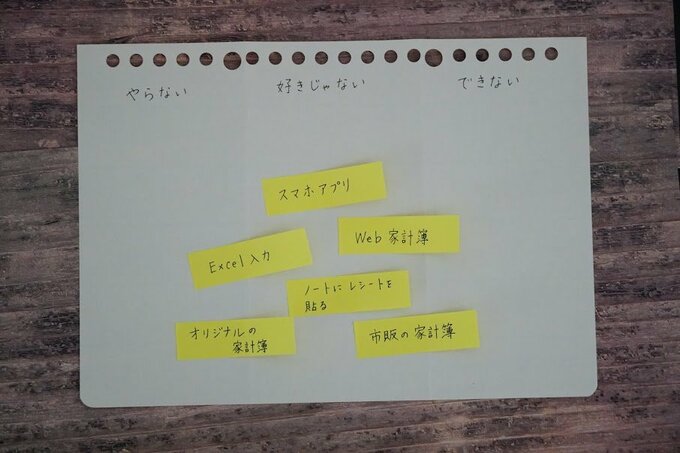 やらない
好きじゃない
できない
スマホアプリ
Web 家計簿
Excel 入力
ノートに レシートを
貼る
オリジナルの
家計簿
市販の 家計簿